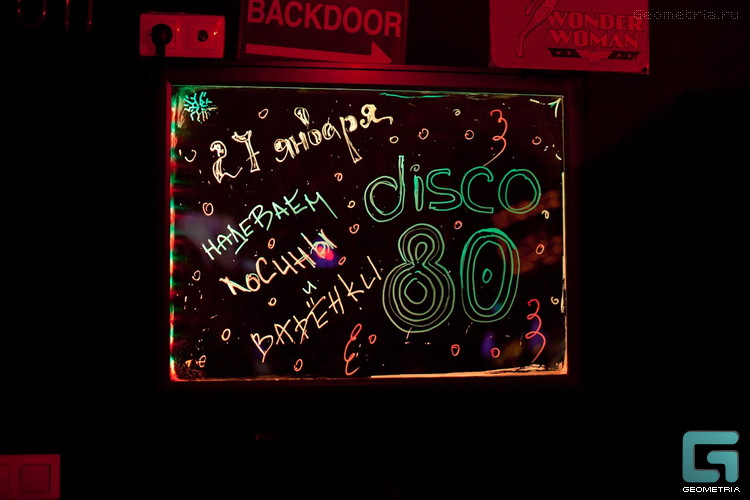 BACKDOOR
WONDER
WOMAN
Geometria.ru
27 января
disco
80
НАДЕВАЕМ
ЛОСИНЫ
и
ВАРЁНКИ
GEOMETRIA